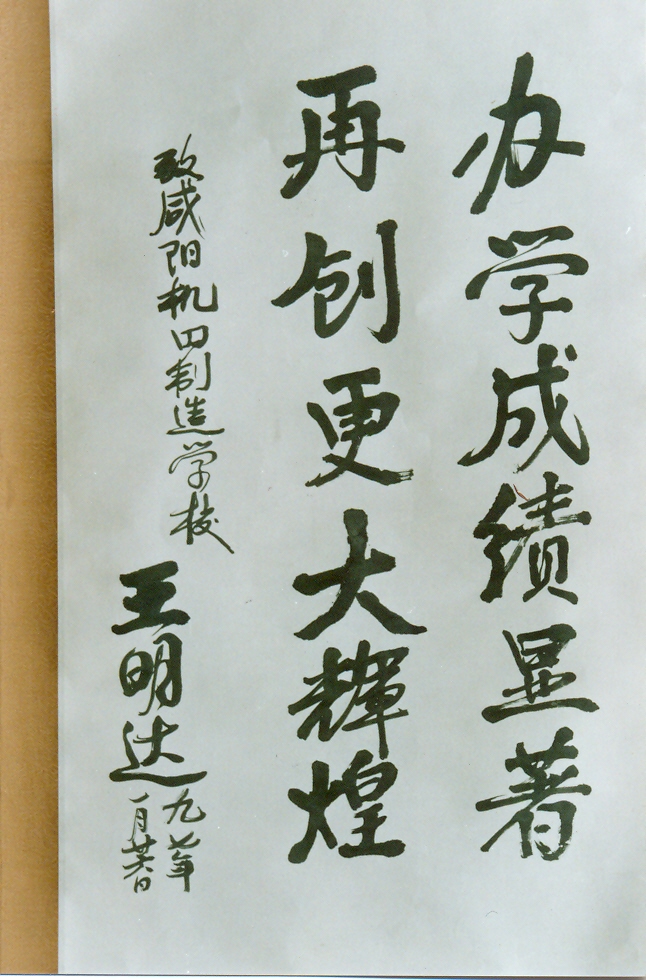 办学成绩显著
再创更大辉煌
致咸阳机四制造学校
王明达
九七年
一月廿六日